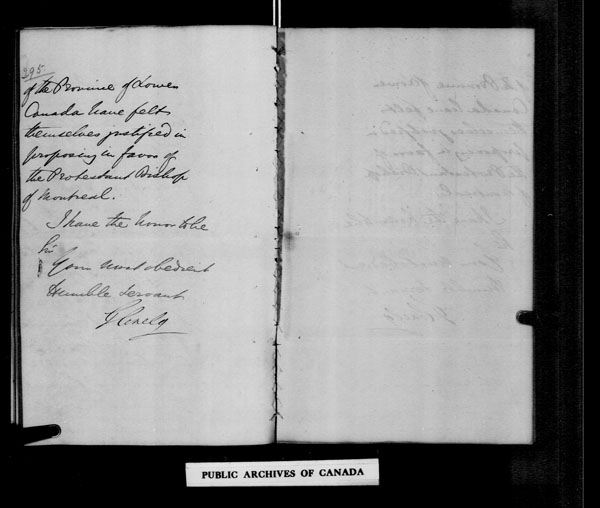 395.
of the Province of Lower
Canada have felt
themselves justified in
proposing in favor of
the Protestant Bishop
of Montreal.
I have the honor to be
Sir
Your most obedient
Humble Servant
Glenelg
PUBLIC ARCHIVES OF CANADA